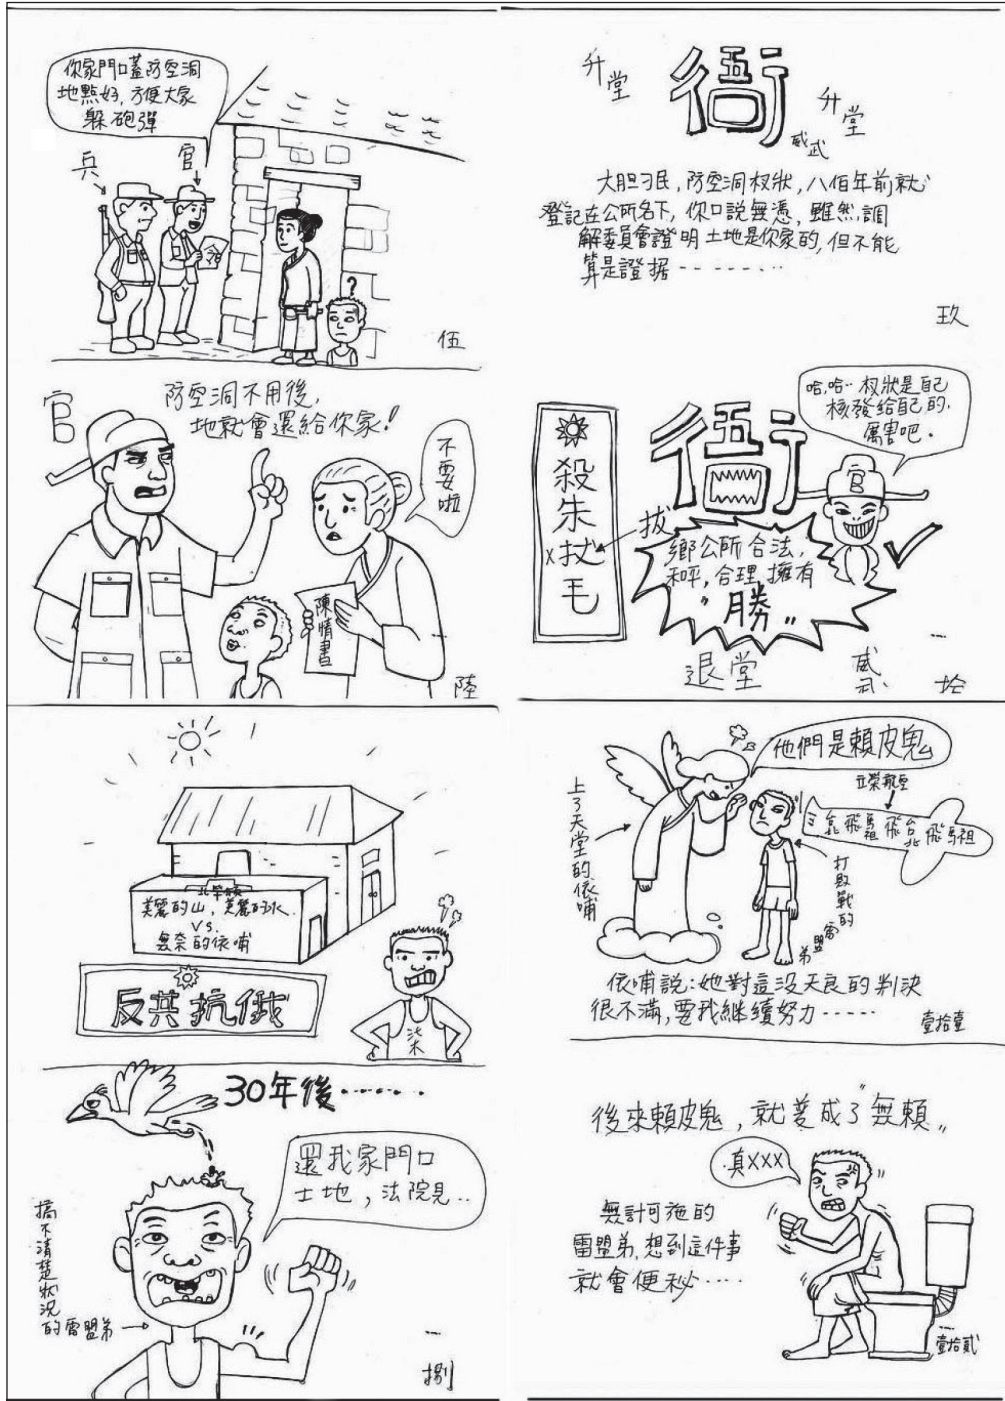 你家門口蓋防空洞
地點好，方便大家
躲砲彈
兵
官
?
伍
官
防空洞不用後，
地就會還給你家!
不要啦
陳情書
陸
美麗的山，美麗的水
VS.
無奈的依哺
反共抗俄
柒
30年後‥‥‥
還我家門口
土地，法院見‥
搞不清楚狀況的雷盟弟
捌
升堂
衙
升堂
威武
大胆刁民，防空洞权狀，八佰年前就
登記在公所名下，你口說無憑，雖然調
解委員會證明土地是你家的，但不能
算是證据--------
玖
殺朱㧞毛
x
拔
衙
哈，哈‥权狀是自己
核發給自己的，
厲害吧。
官
鄉公所合法，
和平，合理，擁有
"勝"
退堂
威武
拾
他們是賴皮鬼
上了天堂的依哺
立榮航空
打敗戰的雷盟弟
依哺說：她對這沒天良的判決
很不滿，要我繼續努力-----
壹拾壹
後來賴皮鬼，就變成了"無賴"
真XXX
無計可施的
雷盟弟，想到這件事
就會便秘‥‥
壹拾貳